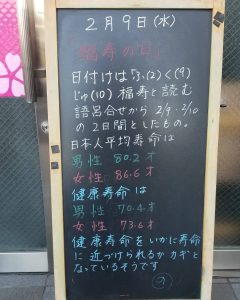 2月9日(水)
「福寿の日」
日付けは「ふ(2)く(9)
じゅ(10)福寿と読む
語呂合せから 2/9・2/10
の2日間としたもの。
日本人平均寿命は
男性 80.2才
女性 86.6才
健康寿命は
男性 70.4才
女性 73.6才
健康寿命をいかに寿命
に近づけられるかカギと
なっているそうです